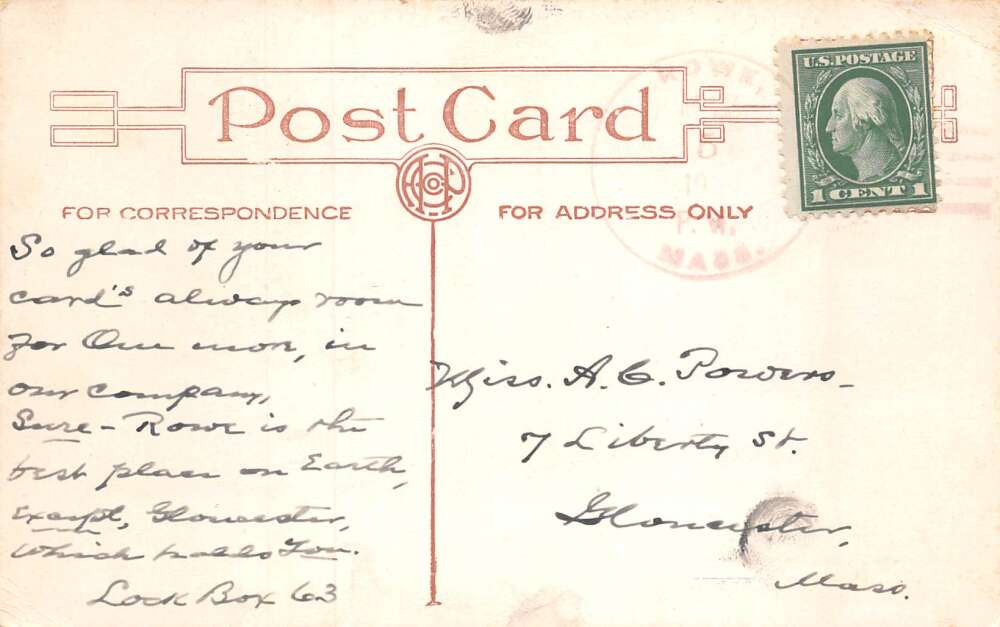 Post Card
FOR CORRESPONDENCE
FOR ADDRESS ONLY
ROWE,
P.M.
MASS.
U.S. POSTAGE
1 CENT 1
So glad of your
card's always room
for One more, in
our company,
Sure - Rowe is the
best place on Earth,
Except, Gloucester,
Which holds You.
Lock Box 63
Miss. A. C. Powers
7 Liberty St.
Gloucester,
Mass.